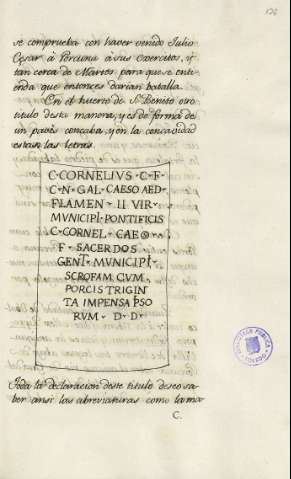 se comprueba con haver venido Julio
Cesar à Porcuna à sus exercitos, y
tan cerca de Martos para que se enti
enda que entonces darian batalla.
En el huerto de S. Benito otro
titulo desta manera, y es de forma de
un pavés concabo, y en la concavidad
estan las letras.
C · CORNELIVS · C · F ·
C · N · GAL · CAESO AED ·
FLAMEN · II VIR ·
MVNICIPI · PONTIFICIS
C · CORNEL · CAESO
F · SACERDOS
GENT · MVNICIPI ·
SCROFAM CVM
PORCIS TRIGIN
TA IMPENSA IPSO
RVM · D · D ·
Toda la declaracion deste titulo deseo sa
ber ansi las abreviaturas como la ma
C.